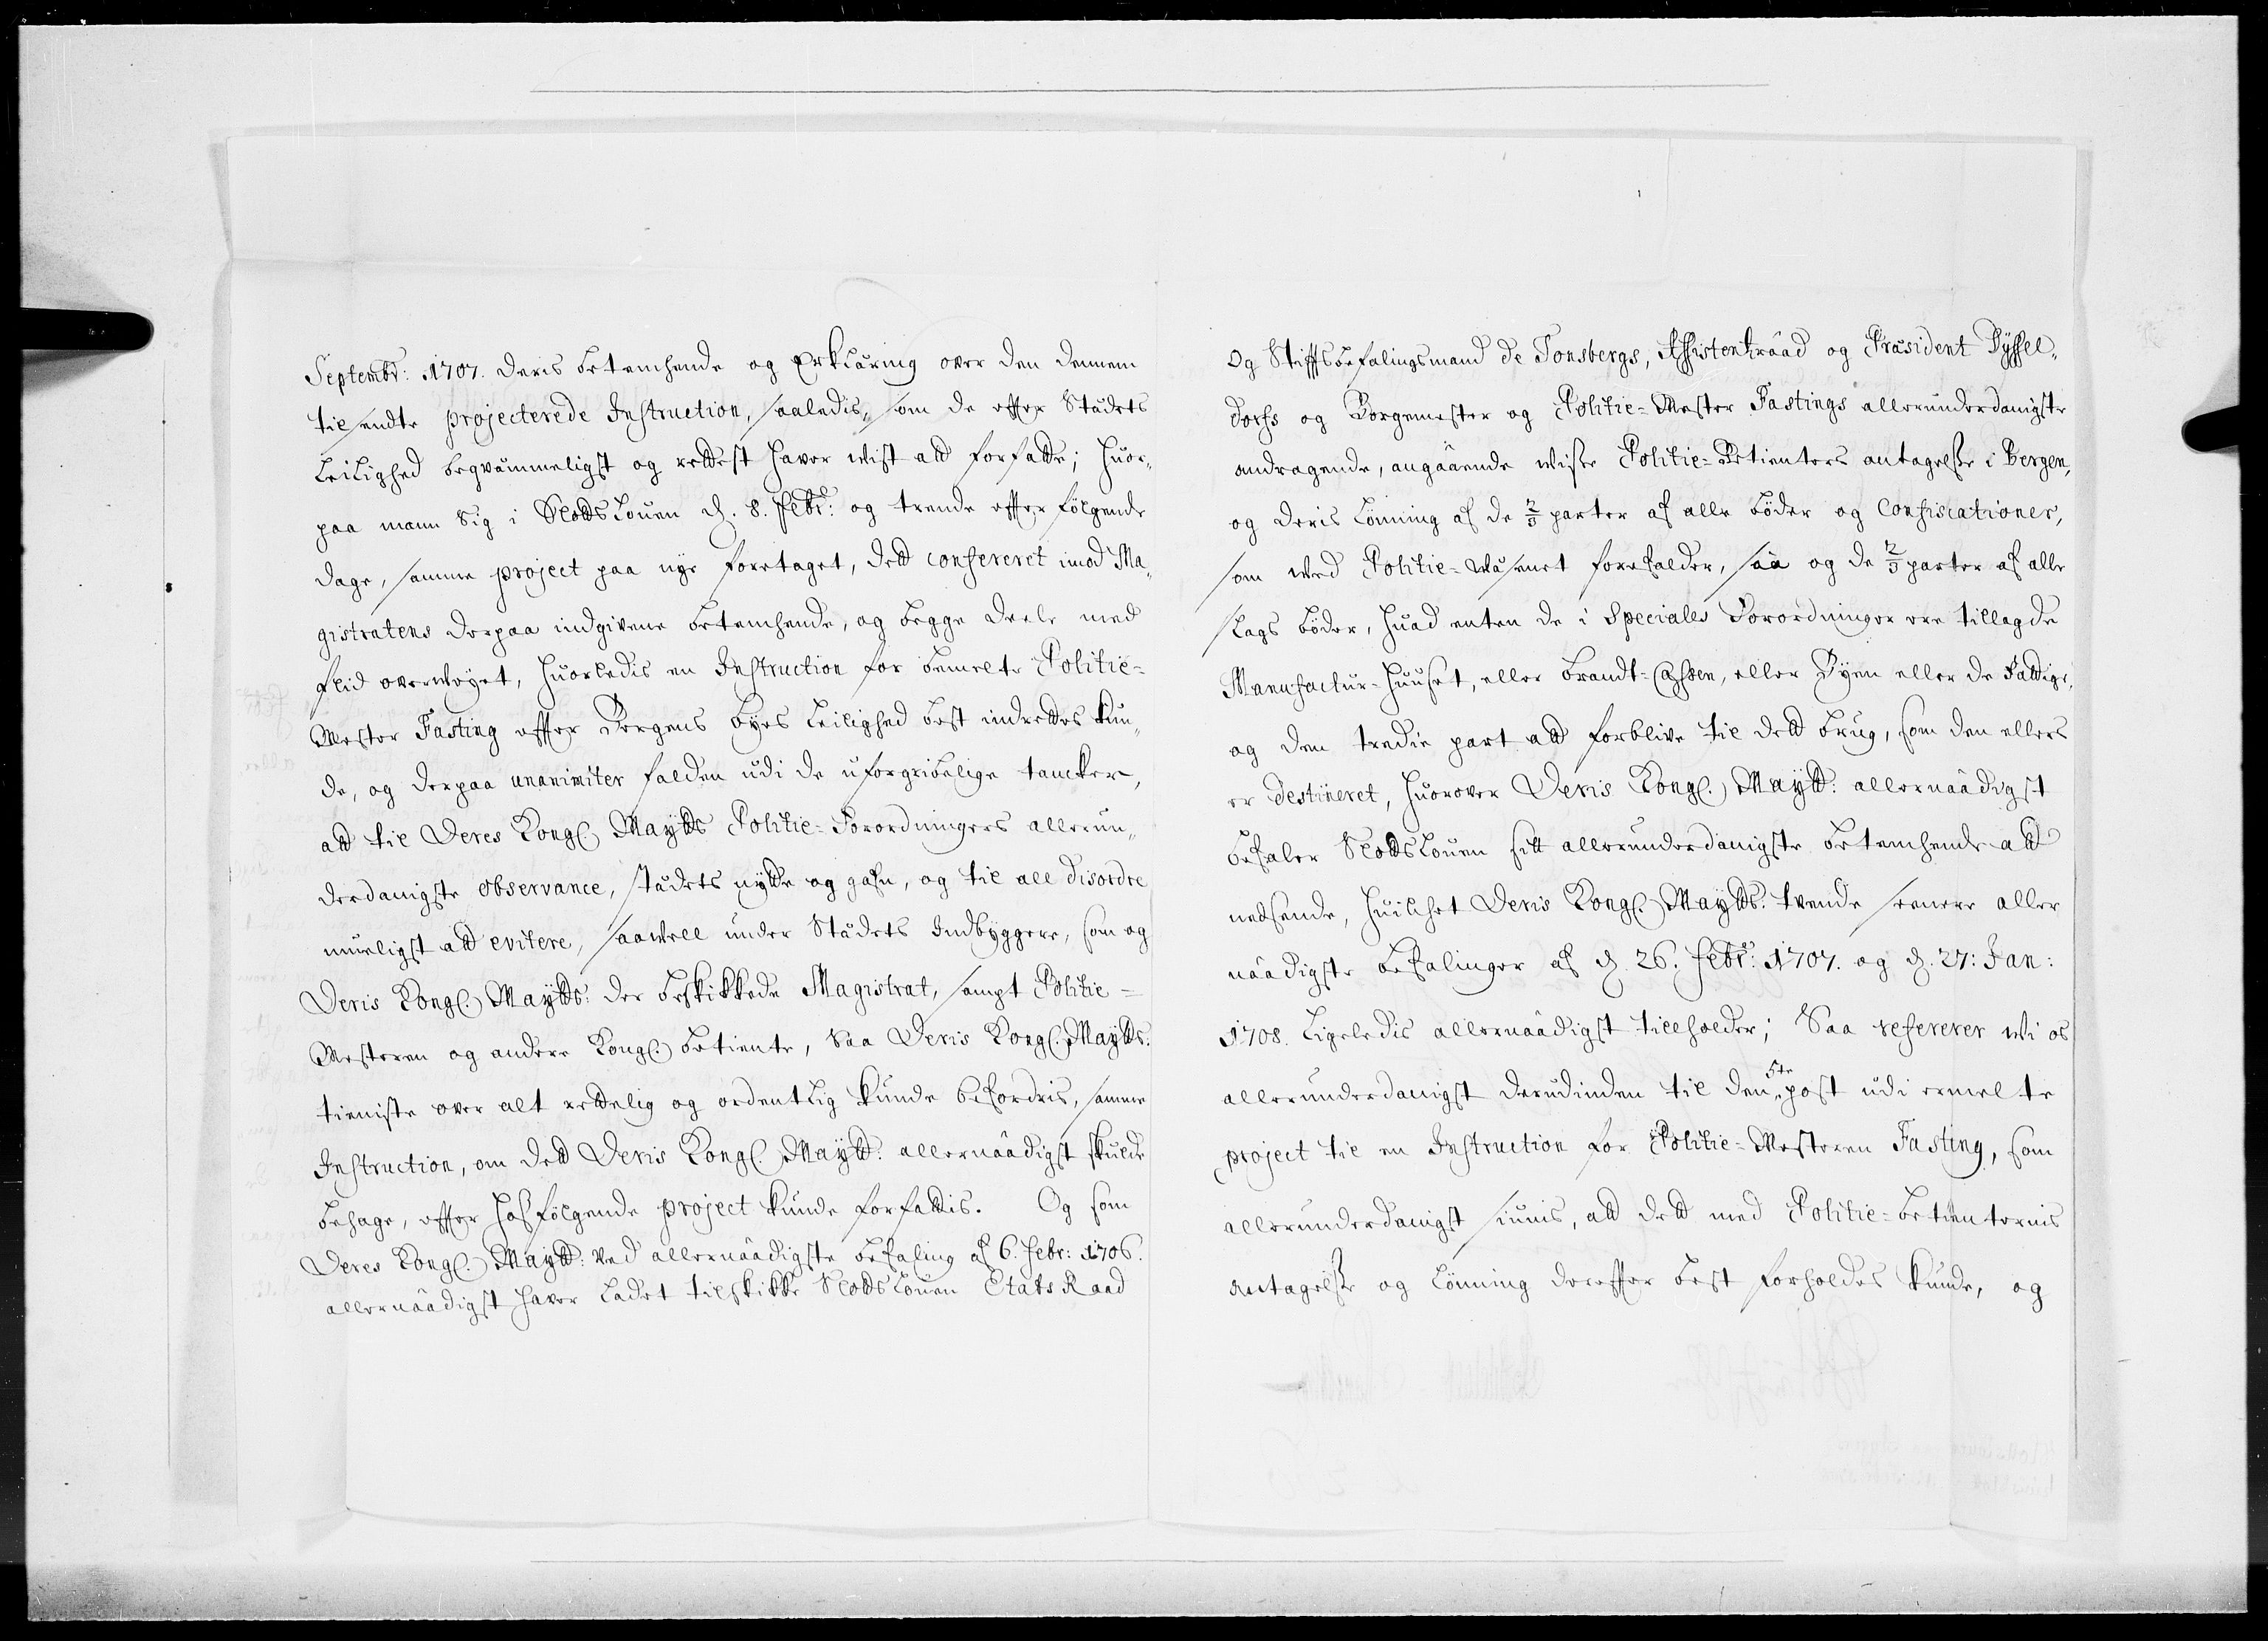 Septembr: 1707. deris betenchende og Erklæring over den dennem
tilsendte projecterede Instruction, saaledis, som de efter Stædets
Leilighed beqvæmmeligst og rettest haver wist att forfatte; huor„
paa mann sig i Slotts Louen d. 8. Febr: og trende effter følgende
dage, samme project paa nye foretaget, dett confereret imod Ma„
gistratens derpaa indgivene betenchende, og begge deele med
flid overvejet, huorledis en Instruction for bemelte Politie-
Mester Fasting effter Bergens Byes Leilighed best indrettes kun„
de, og derpaa unanimiter falden udi de uforgribelige tancker,
att til Deres Kongl. Maytts Politie-Forordningers allerun„
derdanigste observance, stædets nytte og gafn, og til all disordre
mueligst att evitere, saawell under Stædets Indbyggere, som og
Deris Kongl. Maytts: der beskikkede Magistrat, sampt Politie-
Mesteren og andere Kongl. betiente, saa Deris Kongl. Maytts.
tieniste over alt rettelig og ordentlig kunde befordris, samme
Instruction, om dett Deris Kongl. Maytt: allernaadigst skulde
behage, effter hosfølgende project kunde forfattis. Og som
Deres Kongl. Maytt: ved allernaadigste befaling af 6. Febr: 1706.
allernaadigst haver ladet tilskikke Slotts Louen Etats Raad
Og Stifftsbefalingsmand de Tonsbergs, Assistentzraad og Præsident Dyssel„
dorfs og Borgemester og Politie-Mester Fastings allerunderdanigste
andragende, angaaende wisse Politie-Betienters antagelsse i Bergen,
og deris Lønning af de 2/3 parter af alle bøder og Confiscationer,
som ved Politie-wæsenet forefalder, saa og de 2/3 parter af alle
slags bøder, huad enten de i Speciales Forordninger ere tillagde
Manufactur-Huuset, eller brandt-Cassen, eller Byen eller de Fattige,
og den tredie part att forblive til dett brug, som den ellers
er destineret, huorover Deris Kongl. Maytt: allernaadigst
befaler Slotts Louen sitt allerunderdanigste betenchende att
nedsende, huilchet Deris Kongl. Maytts. tvende seenere aller
naadigste befalinger af d. 26. Febr: 1707. og d. 27: Jan:
1708. Ligeledis allernaadigst tillholder; Saa refererer wi os
allerunderdanigst derudinden til den 5te post udi ermelte
project til en Instruction for Politie-Mesteren Fasting, som
allerunderdanigst siunis, att dett med Politie-betienternis
Antagelsse og Lønning dereffter best forholdes kunde, og